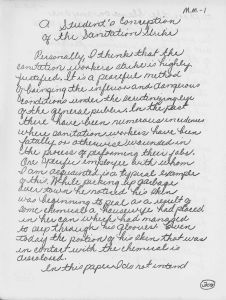 M.M.-1
A Student's Conception
of the Sanitation Strike
Personally, I think that the
sanitation workers strike is highly
justified. It is a peaceful method
of bringing the inferior and dangerous
conditions under the scrutinizing eye
of the general public. In the past
there have been numerous incidents
where sanitation workers have been
fatally or otherwise wounded in
the process of performing their jobs.
One specific employee with whom
I am acquainted is a typical example
of this. While picking up garbage
over town he noticed his skin
was beginning to peal as a result of
some chemical a housewife had placed
in her cans which had managed
to seep through his gloves. Even
today the portion of his skin that was
in contact with the chemical is
discolored.
In this paper I do not intend